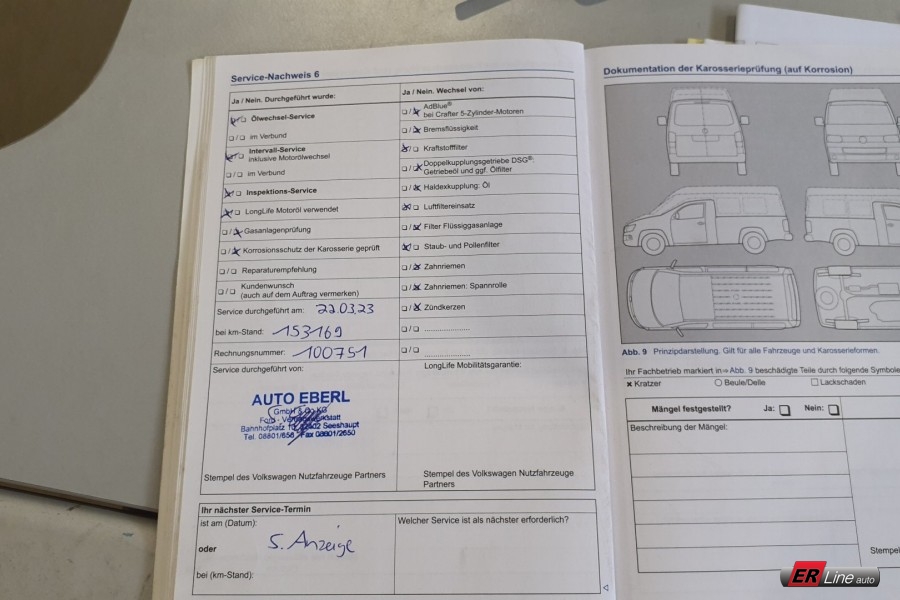 Service-Nachweis 6
Ja / Nein. Durchgeführt wurde:
Ölwechsel-Service
im Verbund
Intervall-Service
inklusive Motorölwechsel
im Verbund
Inspektions-Service
LongLife Motoröl verwendet
Gasanlagenprüfung
Korrosionsschutz der Karosserie geprüft
Reparaturempfehlung
Kundenwunsch
(auch auf dem Auftrag vermerken)
Service durchgeführt am: 22.03.23
bei km-Stand: 153169
Rechnungsnummer: 100751
Service durchgeführt von:
AUTO EBERL
GmbH & Co KG
Bahnhofplatz Seeshaupt
Tel. 08801/656 Fax 08801/2650
Stempel des Volkswagen Nutzfahrzeuge Partners
Ja / Nein. Wechsel von:
AdBlue®
bei Crafter 5-Zylinder-Motoren
Bremsflüssigkeit
Kraftstofffilter
Doppelkupplungsgetriebe DSG®:
Getriebeöl und ggf. Ölfilter
Haldexkupplung: Öl
Luftfiltereinsatz
Filter Flüssiggasanlage
Staub- und Pollenfilter
Zahnriemen
Zahnriemen: Spannrolle
Zündkerzen
LongLife Mobilitätsgarantie:
Stempel des Volkswagen Nutzfahrzeuge
Partners
Ihr nächster Service-Termin
ist am (Datum):
oder S. Anzeige
bei (km-Stand):
Welcher Service ist als nächster erforderlich?
Dokumentation der Karosserieprüfung (auf Korrosion)
Abb. 9 Prinzipdarstellung. Gilt für alle Fahrzeuge und Karosserieformen.
Ihr Fachbetrieb markiert in ⇒ Abb. 9 beschädigte Teile durch folgende Symbole
Kratzer Beule/Delle Lackschaden
Mängel festgestellt? Ja: Nein:
Beschreibung der Mängel:
Stempel
ER Line auto